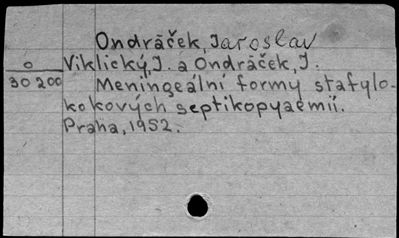 Ondráček, Jaroslav
o Viklický, J. a Ondráček, J.
30200 Meningeální formy stafylo-
kokových septikopyaemií.
Praha, 1952.